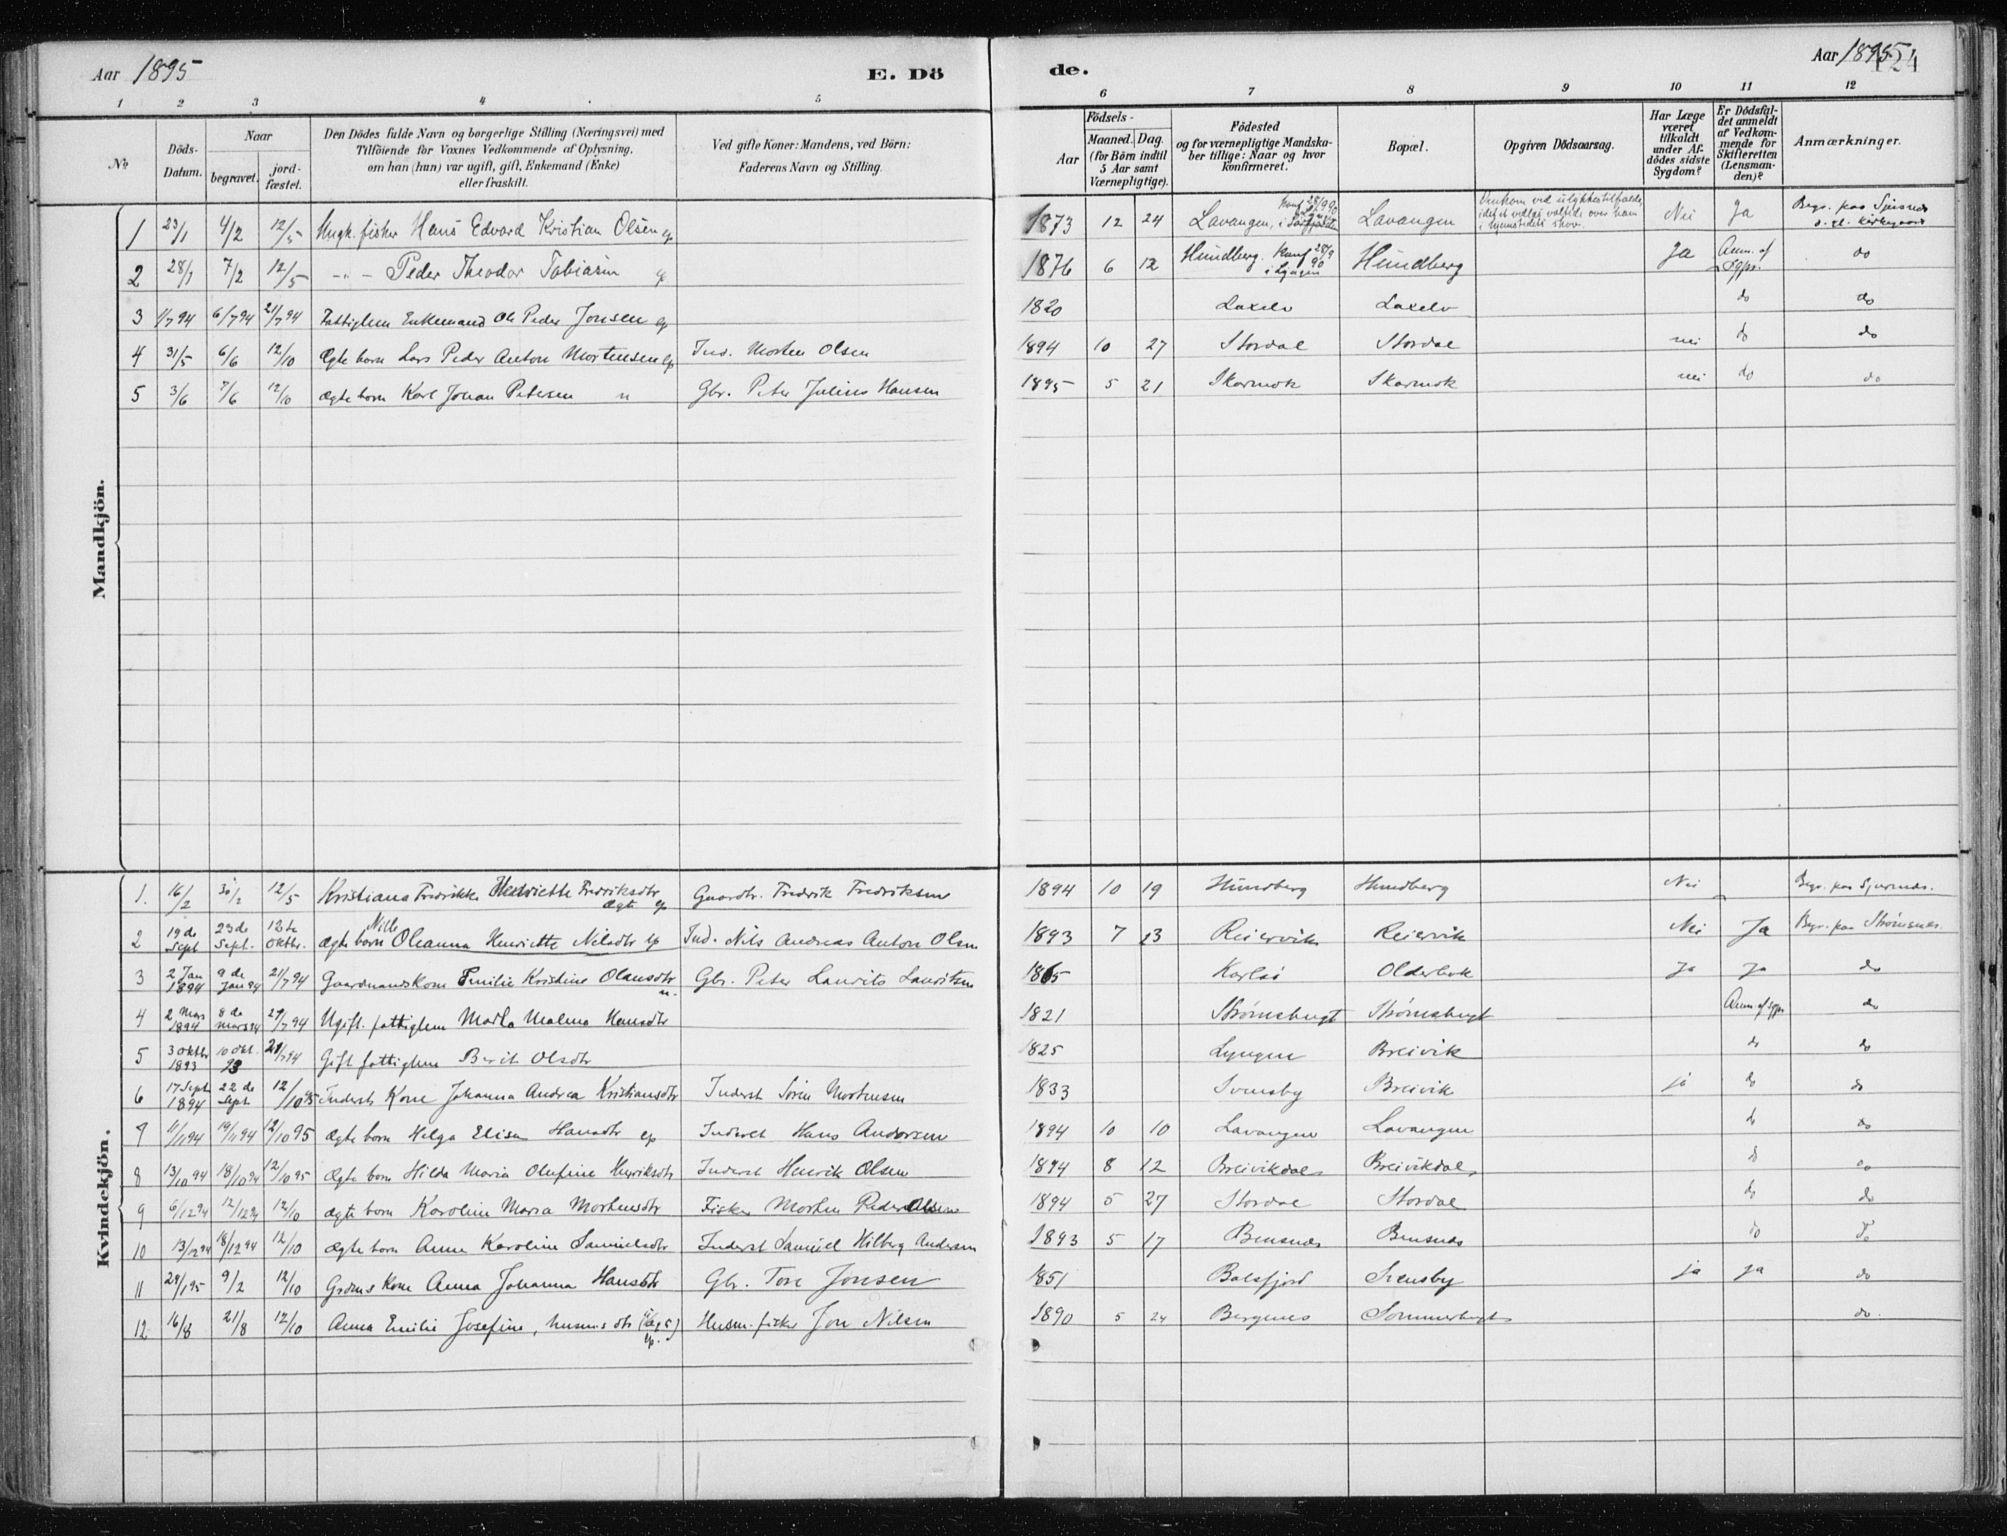 Aar 1895
E. Dö
de.
Aar 1895
124
1 2 3 4 5 6 7 8 9 10 11 12
No
Döds-Datum.
Naar
begravet.
jord-fæstet.
Den Dödes fulde Navn og borgerlige Stilling (Næringsvei) med
Tilföiende for Voxnes Vedkommende af Oplysning,
om han (hun) var ugift, gift, Enkemand (Enke)
eller fraskilt.
Ved gifte Koner: Mandens, ved Börn:
Faderens Navn og Stilling.
Födsels-
Aar
Maaned. Dag.
(for Börn indtil
5 Aar samt
Værnepligtige).
Födested
og for værnepligtige Mandska-
ber tillige: Naar og hvor
konfirmeret.
Bopæl.
Opgiven Dödsaarsag.
Har Læge
været
tilkaldt
under Af-
dödes sidste
Sygdom?
Er Dödsfal-
det anmeldt
af Vedkom-
mende for
Skifteretten
(Lensman-
den)?
Anmærkninger.
Mandkjön.
1 23/1 4/2 12/5 Ungk. fisker Hans Edvard Kristian Olsen ep 1873 12 24 Lavangen, Lavangen Omkom ved ulykkestilfælde, Nei Ja Begr. paa
2 28/1 7/2 12/5 -"- Peder Theodor Tobiasen 1876 6 12 Hundberg. Konf 28/9 90 i Lyngen Hundberg Ja Anm. af Sgpr. do
3 1/7 94 6/7 94 21/7 94 Fattiglem Enkemand Ole Peder Jonsen ep 1820 Laxelv Laxelv do do
4 31/5 6/6 12/10 Ægte barn Lars Peder Anton Mortensen ep Ind. Morten Olsen 1894 10 27 Stordal Stordal nei do do
5 3/6 7/6 12/10 Ægte barn Karl Johan Petersen " Gbr. Peter Julius Hansen 1895 5 21 Skarmok Skarmok nei do do
Kvindekjön.
1. 16/2 12/5 Kristiane Fredrikke Henriette Fredriksdtr ægte ep Gaardbr. Fredrik Fredriksen 1894 10 19 Hundberg Hundberg Nei Begr. paa
2 19de Sept 23de Sept. 12te Oktbr. Ægte barn Nille Oleanna Henriette Nilsdtr ep Ind. Nils Andreas Anton Olsen 1893 7 13 Reiervik Reiervik Nei Ja Begr. paa Strømsnes.
3 2 Jan 1894 9de Jan 94 21/7 94 Gaardmandskone Emilie Kristine Olausdtr Gbr. Peter Laurits Lauritsen 1865 Karlsø Olderbak Ja Ja do
4 2 Mars 1894 8de Mars 94 21/7 94 Ugift fattiglem Marta Malena Hansdtr 1821 Strømsbugt Strømsbugt Anm af Sgpr do
5 3 Oktbr 1893 10 Okt. 93 21/7 94 Gift fattiglem Berit Olsdtr 1825 Lyngen Breivik do do
6 17 Sept 1894 22de Sept 12/10 95 Inderst Kone Johanna Andrea Kristiansdtr Inderst Sørin Mortensen 1833 Svensby Breivik ja do do
7 11/11 94 19/11 94 12/10 95 Ægte barn Helga Elisen Hansdtr ep Inderst Hans Andersen 1894 10 10 Lavangen Lavangen do do
8 13/10 94 18/10 94 12/10 95 Ægte barn Hilda Maria Olufine Henriksdtr Inderst Henrik Olsen 1894 8 12 Breivikdal Breivikdal do do
9 6/12 94 12/12 94 12/10 Ægte barn Karoline Maria Mortensdtr Fisker Morten Peder Olsen 1894 5 27 Stordal Stordal do do
10 13/12 94 18/12 94 12/10 Ægte barn Anne Karoline Samuelsdtr Inderst Samuel Hilberg Andersen 1893 5 17 Bensnes Bensnes do do
11 29/1 95 9/2 12/10 Grdms Kone Anna Johanna Hansdtr Gbr. Tore Jonsen 1851 Balsfjord Svensby ja ja do
12. 16/8 21/8 12/10 Anna Emilie Josefine, husms dtr (æg) ep. Husm. fisker Jon Nilsen 1890 5 24 Bergnes Sommerbugt do.